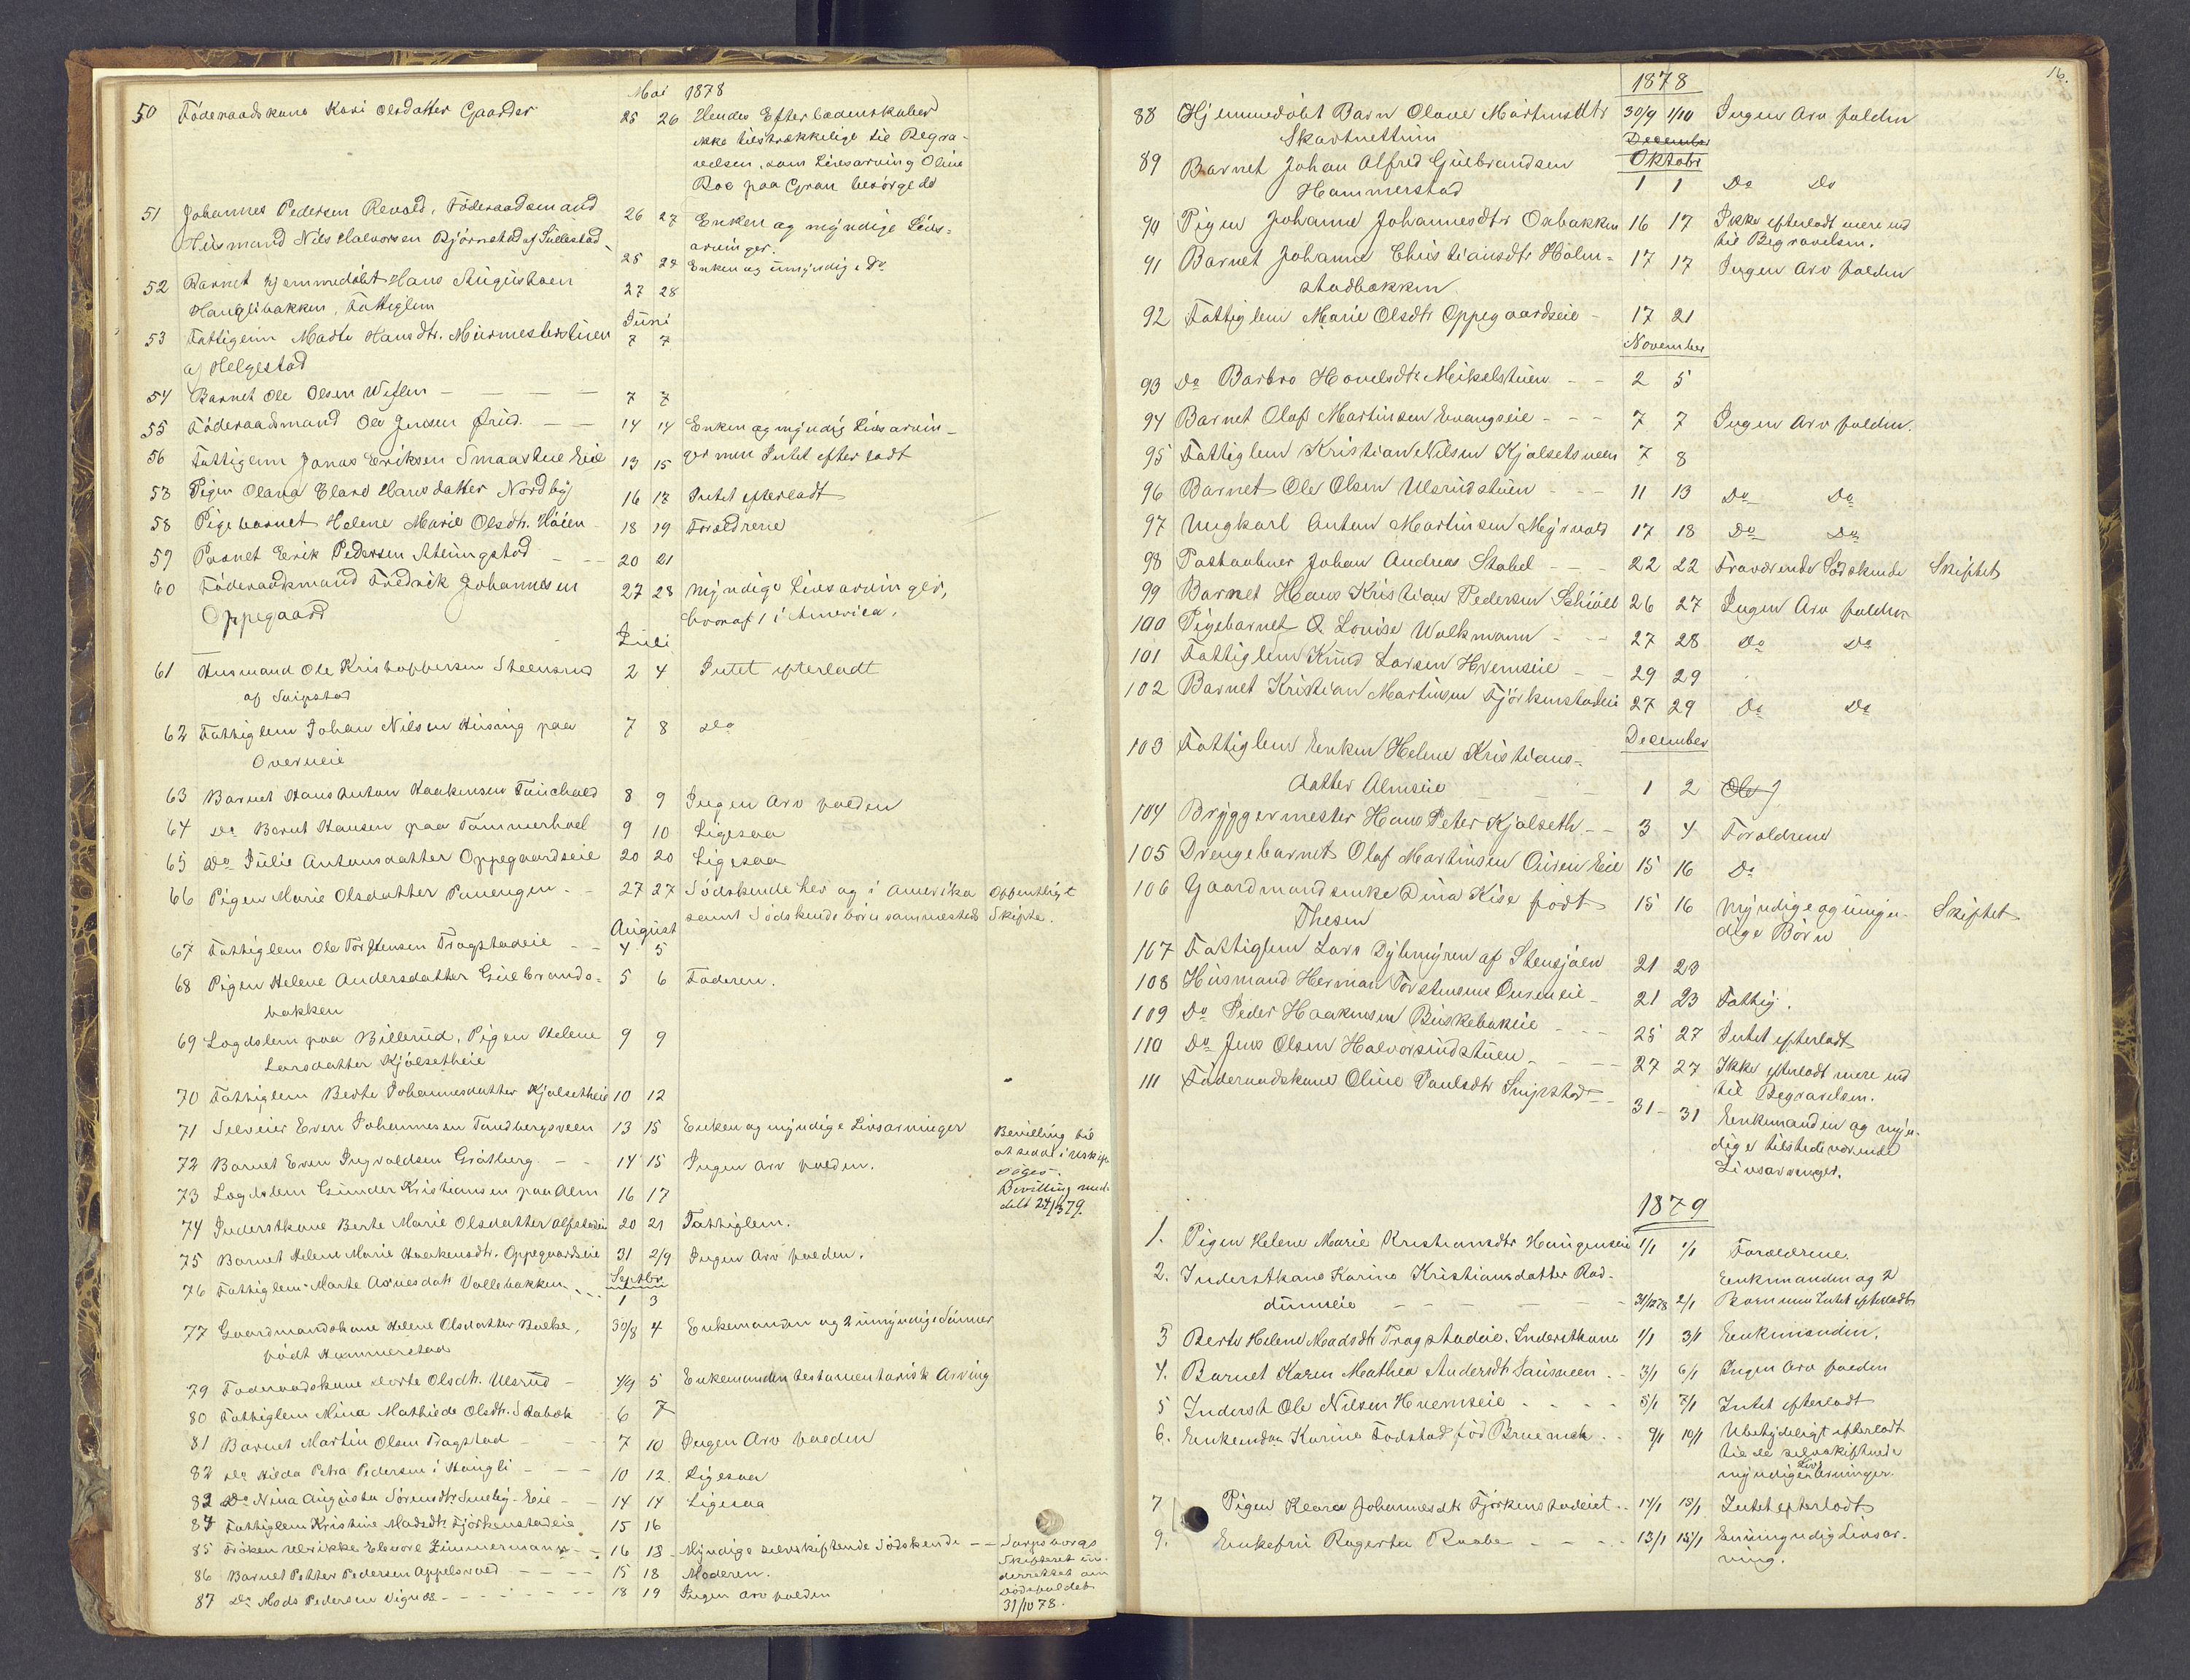 Mai 1878
50 Föderaadskone Kari Olsdatter Gaarder 25 26 Hendes Efterladenskaber
ikke tilstrækkelige til Begra-
velsen, som Livsarving Oline
Roe paa Gran besörgede
51 Johannes Pedersen Revold, Föderaadsmand 26 27 Enken og myndige Livs-
arvinger.
Husmand Nils Halvorsen Björnstad af Sullestad 25 27 Enken og umyndige Do
52 Barnet hjemmedöbt Hans Augustsen 27 28
Hauglibakken, Fattiglem
Juni
53 Fattiglem Marte Hansdtr. Murmesterstuen 7 7
af Helgestad
54 Barnet Ole Olsen Weflen 7 7
55 Föderaadsmand Ole Jensen Frud. 14 14 Enken og myndig Livsarvin-
ger men Intet efterladt
56 Fattiglem Jonas Eriksen Smaastue Eie 13 15
57 Pigen Olava Elard Hansdatter Nordby 16 17 Intet efterladt
58 Pigebarnet Helene Marie Olsdtr. Höien 18 19 Forældrene
59 Barnet Erik Pedersen Steningstad 20 21
60 Föderaadsmand Fredrik Johannesen 27 28 Myndige Livsarvinger,
Oppegaard hvoraf 1 i America.
Juli
61 Husmand Ole Kristoffersen Steensrud 2 4 Intet efterladt
af Snipstad
62 Fattiglem Johan Nilsen Husing paa 7 8 Do
Overneie
63 Barnet Hans Anton Haakensen Fuichald 8 9 Ingen Arv falden
64 Do Bernt Hansen paa Tømmerhoel 9 10 Ligesaa
65 Do Julie Antonsdatter Oppegaardseie 20 20 Ligesaa
66 Pigen Marie Olsdatter Panengen 27 27 Södskende her og i Amerika Offentligt
samt Södskendebörn sammesteds Skifte.
August
67 Fattiglem Ole Torstensen Fragstadeie 4 5
68 Pigen Helene Andersdatter Gulbrands- 5 6 Faderen.
bakken
69 Lægdslem paa Billerud, Pigen Helene 9 9
Larsdatter Kjölsetheie
70 Fattiglem Berte Johannesdatter Kjolsetheie 10 12
71 Selveier Even Johannesen Tandbergsveen 13 15 Enken og myndige Livsarvinger Bevilling til
at sidde i Uskifte
söges.
72 Barnet Even Ingvaldsen Gråtberg 14 15 Ingen Arv falden.
73 Lægdslem Gunder Kristiansen paa Alm 16 17 Bevilling med-
delt 24/1 79.
74 Inderstkone Berte Marie Olsdatter Alfstadeie 20 21 Fattiglem.
75 Barnet Helene Marie Haakensdtr. Oppegaardseie 31 2/9 Ingen Arv falden.
Septbr
76 Fattiglem Marte Arnesdatr Vollebakken 1 3
77 Gaardmandskone Helene Olsdatter Balke, 30/8 4 Enkemanden og 2 umyndige Sönner
födt Hammerstad
79 Föderaadskone Dorte Olsdtr. Ulsrud 4/9 5 Enkemanden testamentarisk Arving
80 Fattiglem Mina Mathilde Olsdtr. Stabæk 6 7
81 Barnet Martin Olsen Fragstad 7 10 Ingen Arv falden
82 Do Hilda Petra Pedersen i Haugli 10 12 Ligesaa
83 Do Nina Augusta Sörensdtr Smeby Eie 14 14 Ligesaa
84 Fattiglem Kristine Madsdtr Fjörkenstadeie 15 16
85 Fröken Ulrikke Elenore Zimmermann 16 18 Myndige selvskiftende Södskende Sarpsborgs
Skifteret un-
derrettet om
Dödsfaldet
31/10 78.
86 Barnet Petter Pedersen Appelsvold 15 18 Moderen.
87 Do Mads Pedersen Vignæs 18 19 Ingen Arv falden
16.
1878
88 Hjemmedöbt Barn Olave Martinsdtr 30/9 1/10 Ingen Arv falden
Skartnettum
December
Oktobr
89 Barnet Johan Alfred Gulbrandsen 1 1 Do Do
Hammerstad
90 Pigen Johanne Johannesdtr Oxbakken 16 17 Ikke efterladt mere end
til Begravelsen.
91 Barnet Johanne Christiansdtr Holm- 17 17 Ingen Arv falden
stadbakken
92 Fattiglem Marie Olsdtr Oppegaardseie 17 21
November
93 Do Barbro Hovelsdtr Meikelstuen 2 5
94 Barnet Olaf Martinsen Evangseie 7 7 Ingen Arv falden.
95 Fattiglem Kristian Nilsen Kjolsetsveen 7 8
96 Barnet Ole Olsen Ulsrudstuen 11 13 Do Do
97 Ungkarl Anton Martinsen Myrvold 17 18 Do Do
98 Postaabner Johan Andreas Stabel 22 22 Fraværende Södskende Skiftet
99 Barnet Hans Kristian Pedersen Schiöll 26 27 Ingen Arv falden
100 Pigebarnet O. Louise Wolkmann 27 28 Do Do
101 Fattiglem Knud Larsen Hvemseie 29 29
102 Barnet Kristian Martinsen Fjörkenstadeie 27 29 Do Do
December
103 Fattiglem Enken Helene Kristians-
datter Almseie 1 2 Ole J
104 Bryggermester Hans Peter Kjolseth 3 4 Forældrene
105 Drengebarnet Olaf Martinsen Ouren Eie 15 16 Do
106 Gaardmandsenke Dina Kise födt 15 16 Myndige og umyn- Skiftet
Thesen dige Börn
107 Fattiglem Lars Dyhmyren af Stensjoen 21 23
108 Husmand Herman Torstensens Oureneie 21 23 Fattig.
109 Do Peder Haakensen Biiskebakeie 25 27 Intet efterladt
110 Do Jens Olsen Halvorsrudstuen 27 27 Ikke efterladt mere end
til Begravelsen.
111 Föderaadskone Oline Paulsdtr Snipstad 31 31 Enkemanden og myn-
dige tilstedeværende
Livsarvinger.
1879
1. Pigen Helene Marie Kristiansdtr Haugenseie 1/1 1/1 Forældrene.
2. Inderstkone Karine Kristiansdatter Rød- Enkemanden og 2
dumseie 31/12 78 2/1 Børn men Intet efterladt
3 Berte Helene Madsdtr Fragstadeie. Inderstkone 1/1 3/1 Enkemanden.
4. Barnet Karen Mathea Andersdtr Sausveen 3/1 6/1 Ingen Arv falden
5 Inderst Ole Nilsen Hvemseie 5/1 7/1 Intet efterladt
6. Enkemadam Karine Fodstad föd Bruemek 9/1 10/1 Ubetydeligt efterladt
til de selvskiftende
myndige Livs Arvinger.
7 Pigen Klara Johannesdtr Fjörkenstadeiet 14/1 15/1 Intet efterladt
9. Enkefru Ragerta Raabe 13/1 15/1 En umyndig Livsar-
ving.